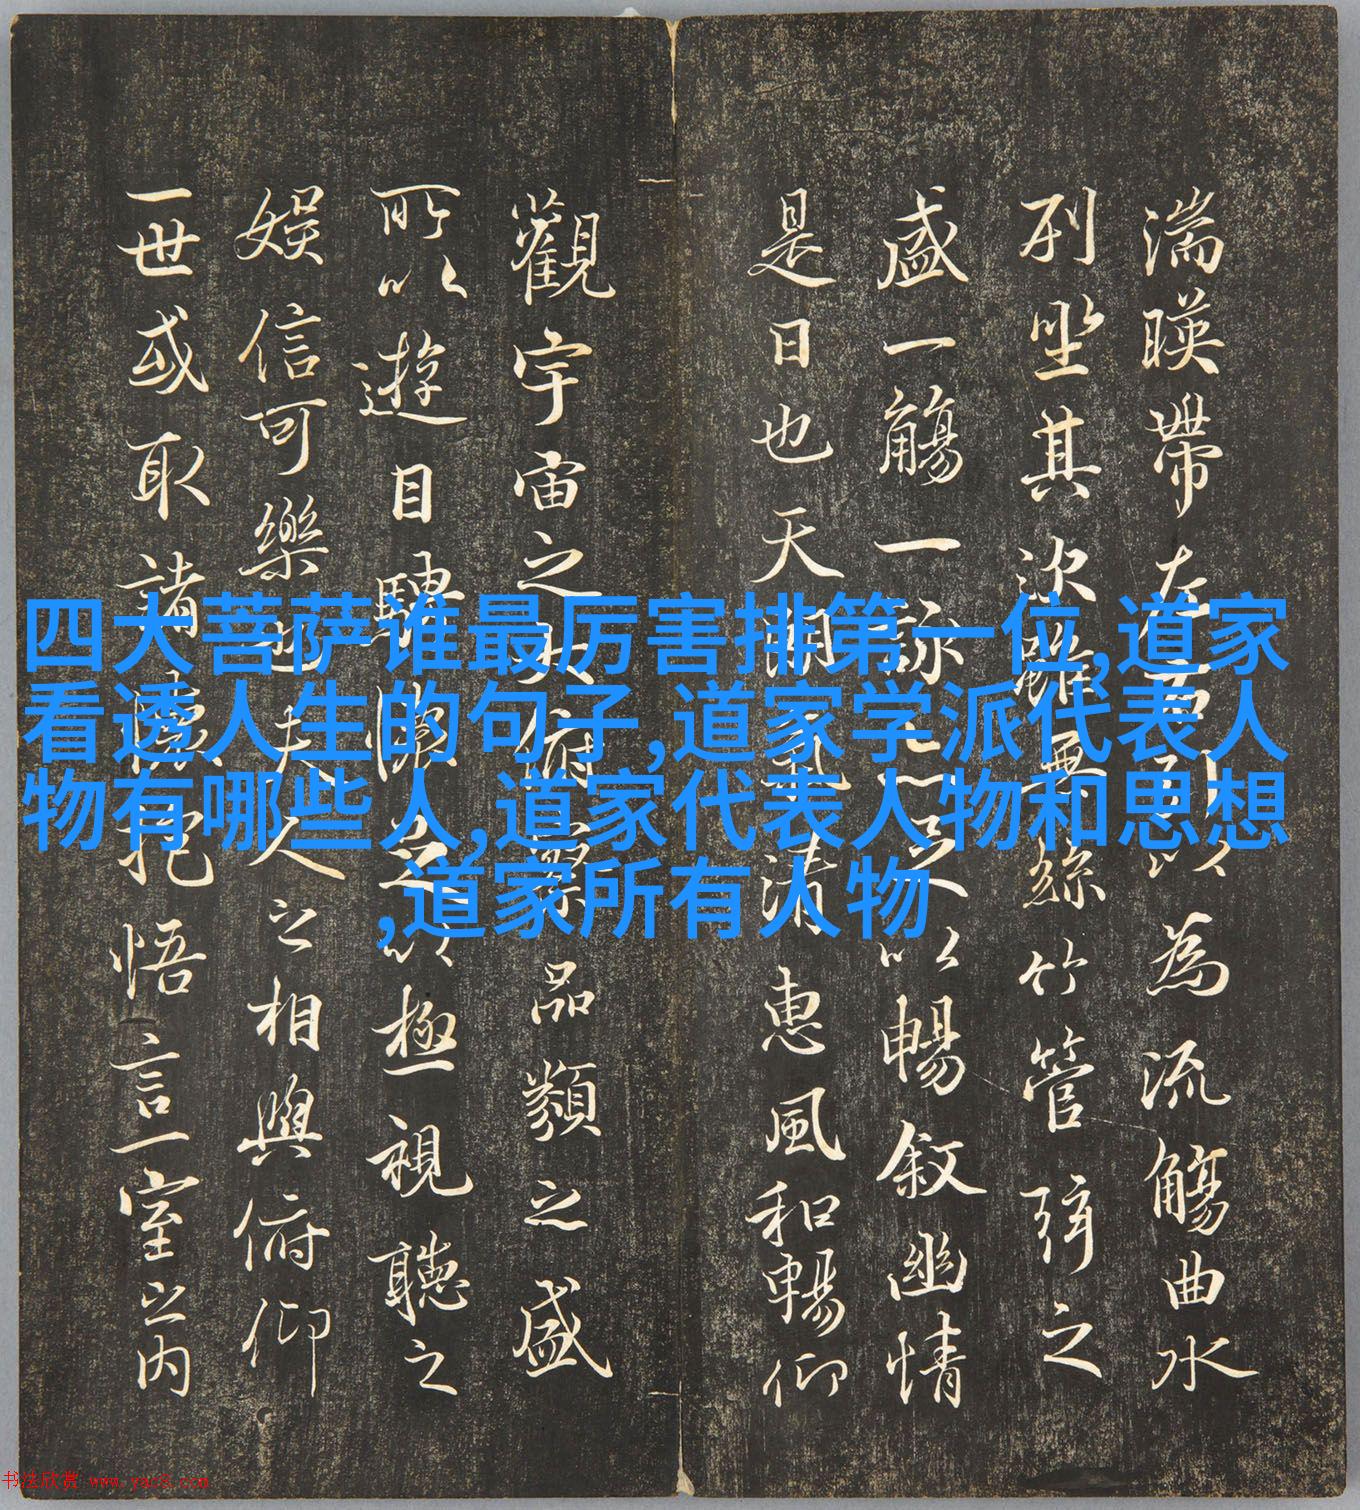 湍暎帶左右引以為流觴曲水
列坐其次雖無絲竹管弦之
盛一觴一詠亦足以暢敘幽情
是日也天朗氣清惠風和暢仰
觀宇宙之大俯察品類之盛
所以遊目騁懷足以極視聽之
娛信可樂也夫人之相與俯仰
一世或取諸懷抱悟言一室之內
四大菩萨谁最厉害排第一位,道家
看透人生的句子,道家学派代表人
物有哪些人,道家代表人物和思想
,道家所有人物
书法欣赏 www.yac8.com